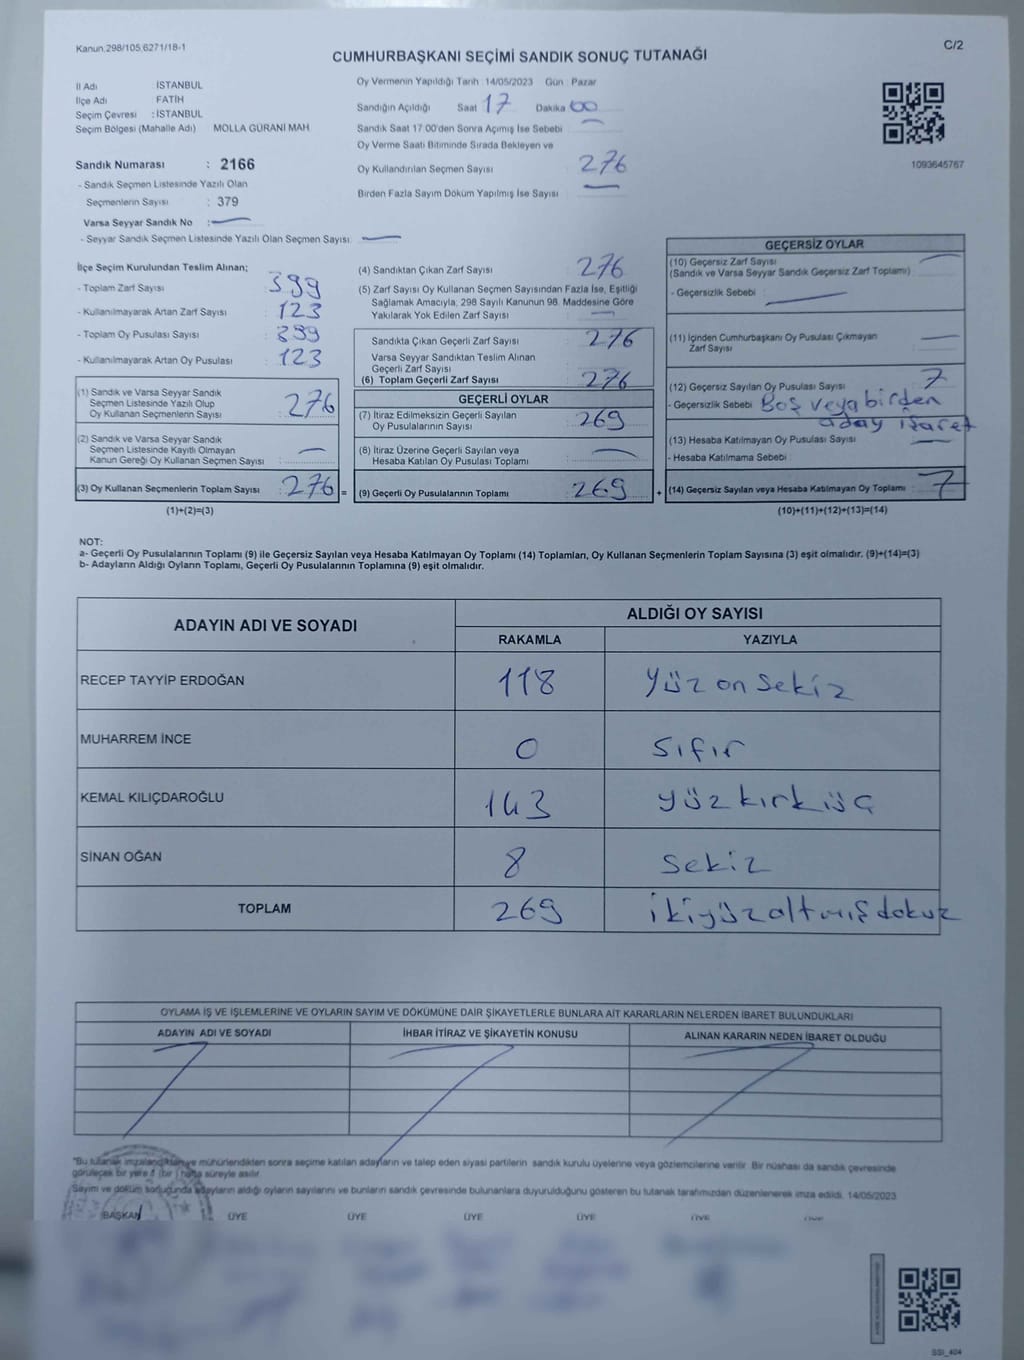 Kanun.298/105,6271/18-1
C/2
CUMHURBAŞKANI SEÇİMİ SANDIK SONUÇ TUTANAĞI
İl Adı İSTANBUL
İlçe Adı FATİH
Seçim Çevresi : İSTANBUL
Seçim Bölgesi (Mahalle Adı) MOLLA GÜRANİ MAH
Sandık Numarası : 2166
- Sandık Seçmen Listesinde Yazılı Olan
Seçmenlerin Sayısı : 379
Varsa Seyyar Sandık No :
- Seyyar Sandık Seçmen Listesinde Yazılı Olan Seçmen Sayısı:
Oy Vermenin Yapıldığı Tarih 14/05/2023 Gün : Pazar
Sandığın Açıldığı Saat 17 Dakika 00
Sandık Saat 17:00'den Sonra Açımış İse Sebebi
Oy Verme Saati Bitiminde Sırada Bekleyen ve
Oy Kullandırılan Seçmen Sayısı : 276
Birden Fazla Sayım Döküm Yapılmış İse Sayısı
1093645767
İlçe Seçim Kurulundan Teslim Alınan;
- Toplam Zarf Sayısı : 399
- Kullanılmayarak Artan Zarf Sayısı : 123
- Toplam Oy Pusulası Sayısı : 399
- Kullanılmayarak Artan Oy Pusulası : 123
(1) Sandık ve Varsa Seyyar Sandık
Seçmen Listesinde Yazılı Olup
Oy Kullanan Seçmenlerin Sayısı : 276
(2) Sandık ve Varsa Seyyar Sandık
Seçmen Listesinde Kayıtlı Olmayan
Kanun Gereği Oy Kullanan Seçmen Sayısı :
(3) Oy Kullanan Seçmenlerin Toplam Sayısı : 276 =
(1)+(2)=(3)
(4) Sandıktan Çıkan Zarf Sayısı : 276
(5) Zarf Sayısı Oy Kullanan Seçmen Sayısından Fazla İse, Eşitliği
Sağlamak Amacıyla, 298 Sayılı Kanunun 98. Maddesine Göre
Yakılarak Yok Edilen Zarf Sayısı :
Sandıkta Çıkan Geçerli Zarf Sayısı : 276
Varsa Seyyar Sandıktan Teslim Alınan
Geçerli Zarf Sayısı
(6) Toplam Geçerli Zarf Sayısı : 276
GEÇERLİ OYLAR
(7) İtiraz Edilmeksizin Geçerli Sayılan
Oy Pusulalarının Sayısı : 269
(8) İtiraz Üzerine Geçerli Sayılan veya
Hesaba Katılan Oy Pusulası Toplamı :
(9) Geçerli Oy Pusulalarının Toplamı : 269 +
GEÇERSİZ OYLAR
(10) Geçersiz Zarf Sayısı
(Sandık ve Varsa Seyyar Sandık Geçersiz Zarf Toplamı) :
- Geçersizlik Sebebi :
(11) İçinden Cumhurbaşkanı Oy Pusulası Çıkmayan
Zarf Sayısı :
(12) Geçersiz Sayılan Oy Pusulası Sayısı : 7
- Geçersizlik Sebebi : Boş veya birden
aday işaret
(13) Hesaba Katılmayan Oy Pusulası Sayısı
- Hesaba Katılmama Sebebi :
(14) Geçersiz Sayılan veya Hesaba Katılmayan Oy Toplamı : 7
(10)+(11)+(12)+(13)=(14)
NOT:
a- Geçerli Oy Pusulalarının Toplamı (9) ile Geçersiz Sayılan veya Hesaba Katılmayan Oy Toplamı (14) Toplamları, Oy Kullanan Seçmenlerin Toplam Sayısına (3) eşit olmalıdır. (9)+(14)=(3)
b- Adayların Aldığı Oyların Toplamı, Geçerli Oy Pusulalarının Toplamına (9) eşit olmalıdır.
ADAYIN ADI VE SOYADI
ALDIĞI OY SAYISI
RAKAMLA YAZIYLA
RECEP TAYYİP ERDOĞAN 118 yüz on sekiz
MUHARREM İNCE 0 sıfır
KEMAL KILIÇDAROĞLU 143 yüz kırk üç
SİNAN OĞAN 8 sekiz
TOPLAM 269 ikiyüz altmış dokuz
OYLAMA İŞ VE İŞLEMLERİNE VE OYLARIN SAYIM VE DÖKÜMÜNE DAİR ŞİKAYETLERLE BUNLARA AİT KARARLARIN NELERDEN İBARET BULUNDUKLARI
ADAYIN ADI VE SOYADI İHBAR İTİRAZ VE ŞİKAYETİN KONUSU ALINAN KARARIN NEDEN İBARET OLDUĞU
*Bu tutanak imzalandıktan ve mühürlendikten sonra seçime katılan adayların ve talep eden siyasi partilerin sandık kurulu üyelerine veya gözlemcilerine verilir. Bir nüshası da sandık çevresinde
görülecek bir yere 1 (bir) hafta süreyle asılır.
Sayım ve döküm sonucunda adayların aldığı oyların sayılarını ve bunların sandık çevresinde bulunanlara duyurulduğunu gösteren bu tutanak tarafımızdan düzenlenerek imza edildi. 14/05/2023
BAŞKAN ÜYE ÜYE ÜYE ÜYE ÜYE
SSI_404